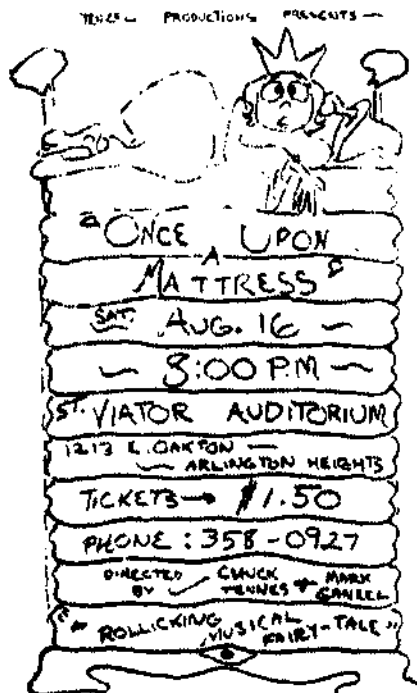 PRODUCTIONS PRESENTS —
"ONCE UPON
A
MATTRESS"
SAT. AUG. 16 —
— 8:00 P.M —
ST. VIATOR AUDITORIUM
1213 E. OAKTON —
— ARLINGTON HEIGHTS
TICKETS→ $1.50
PHONE: 358-0927
DIRECTED BY CHUCK TENNES + MARK
"A ROLLICKING MUSICAL FAIRY-TALE"